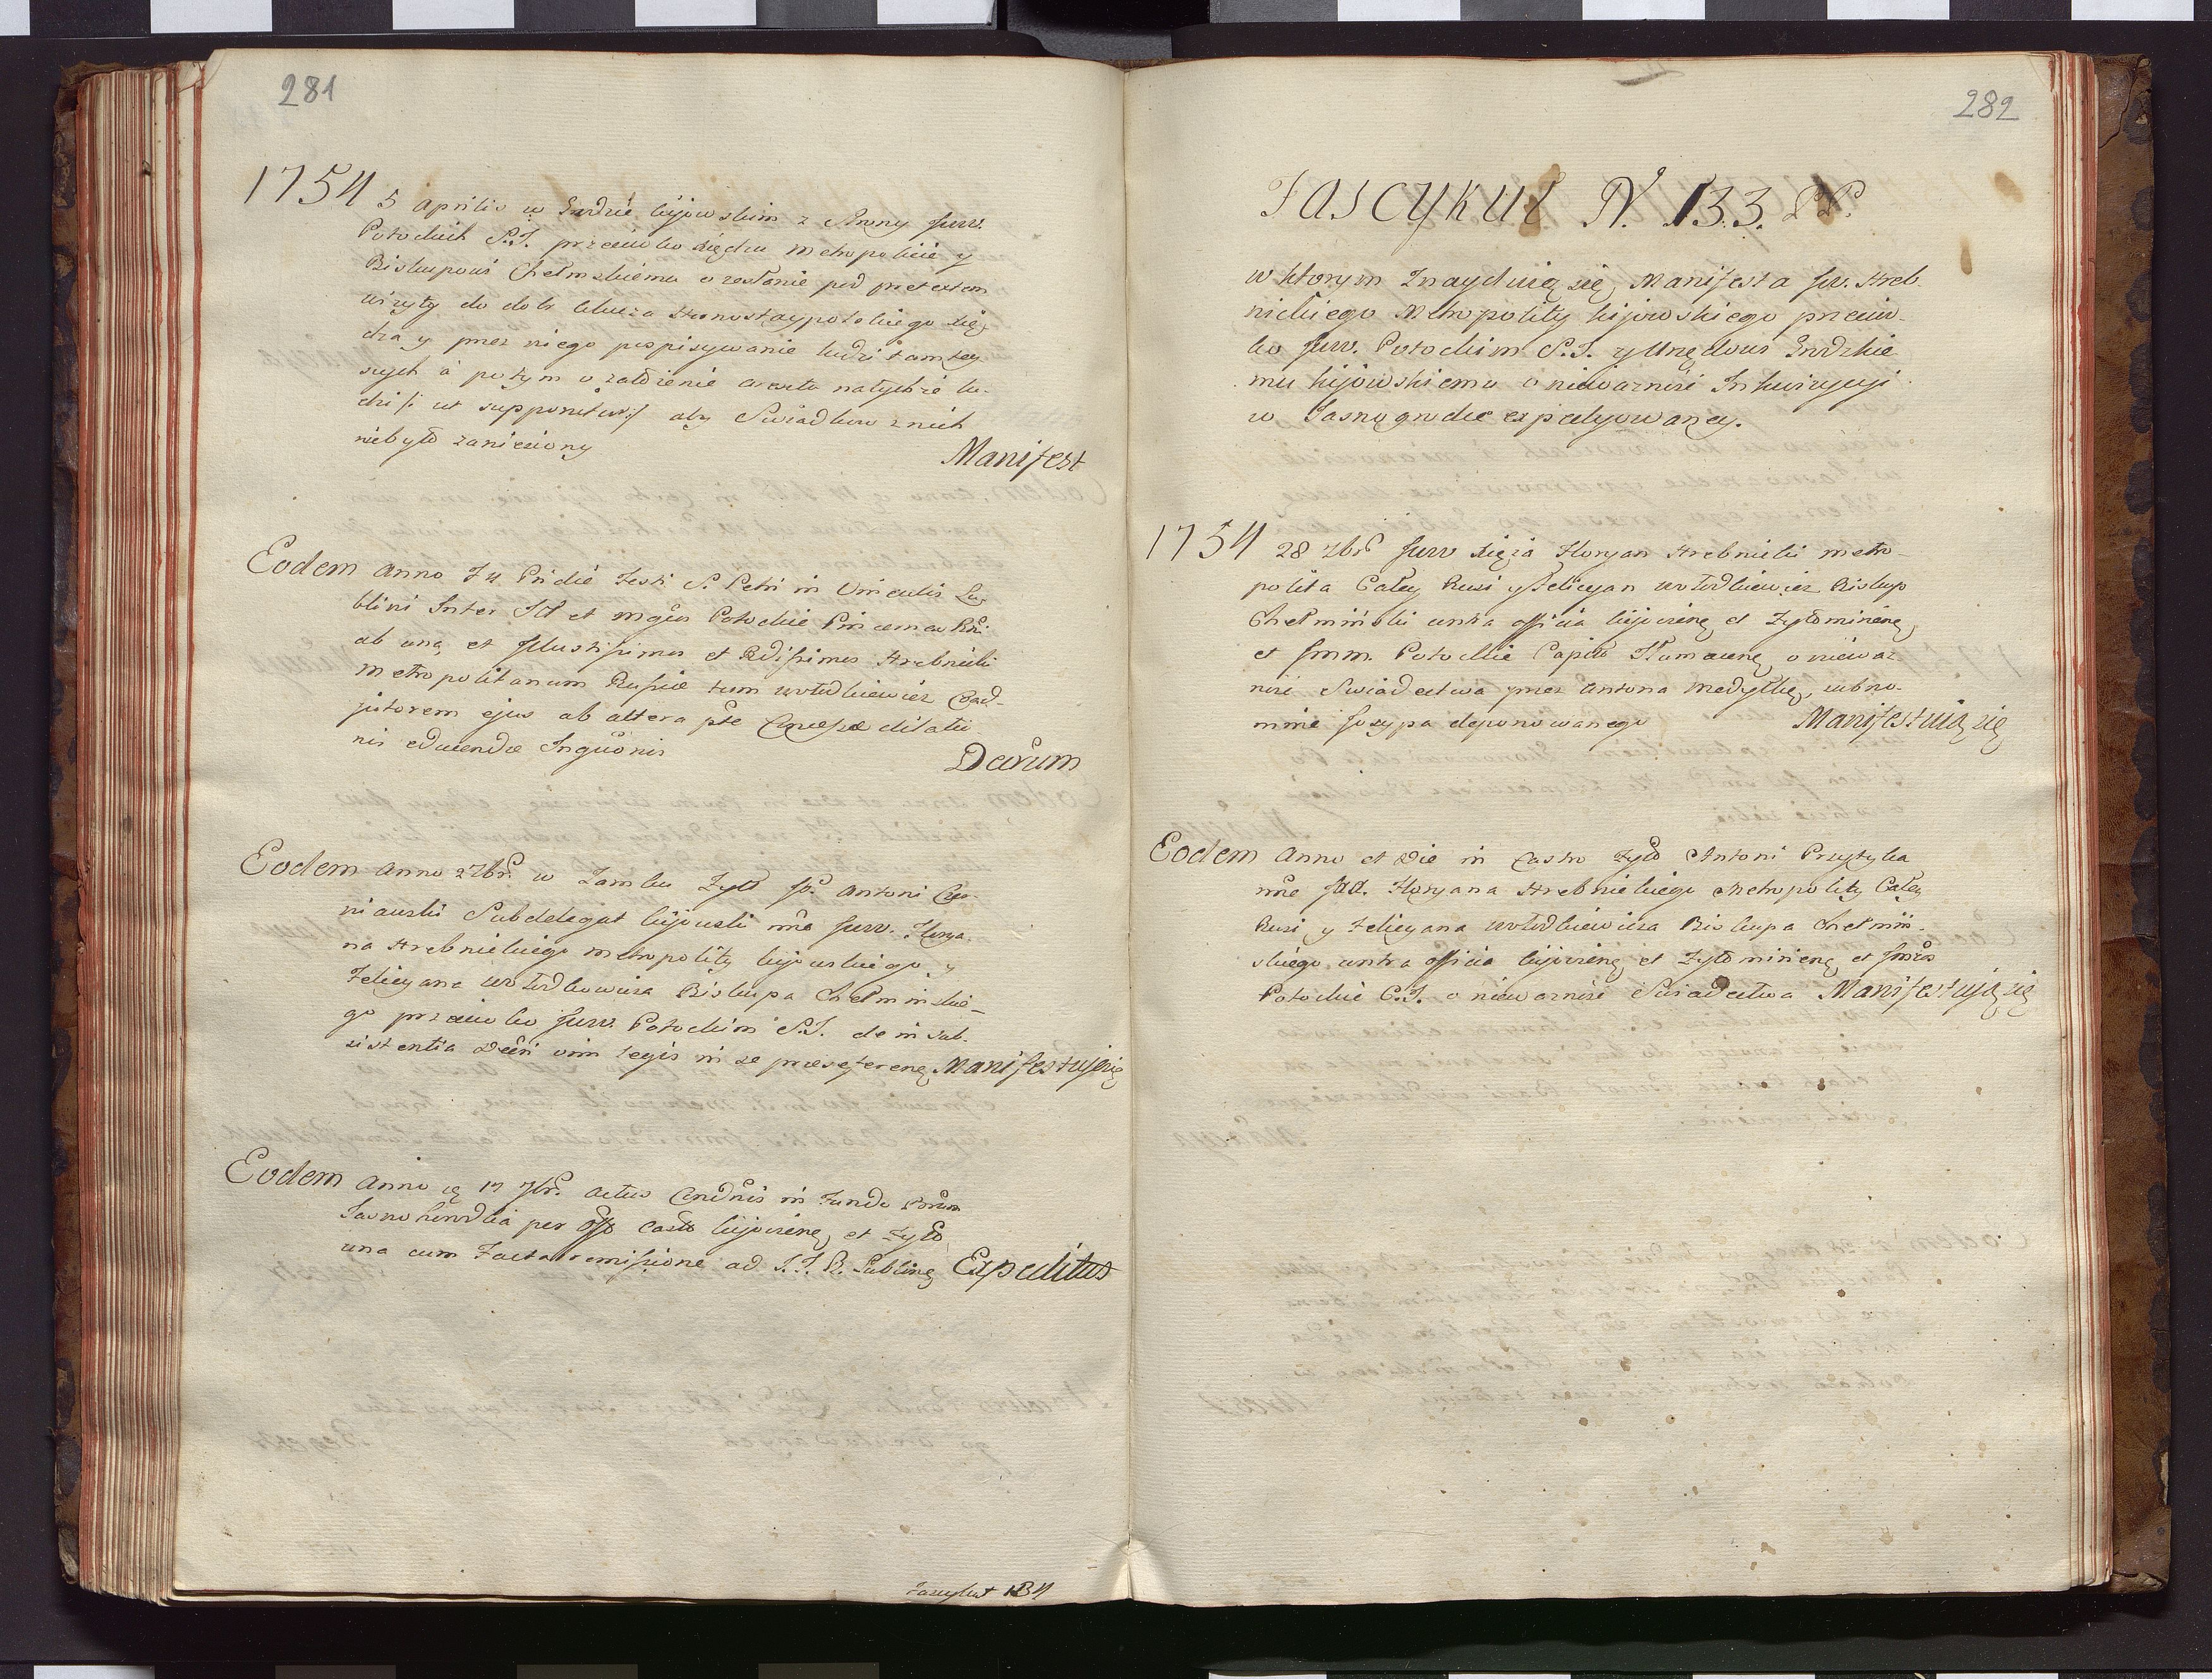 281
1754 5 Aprilis w Grodzie kijowskim z strony Jww.
Potockich S.J. przeciwko Xiędzu Metropolicie y
Biskupowi Chełmskiemu o zesłanie pod pretextem
wizyty do dobr klucza Hornostaypolskiego Xię,,
dza y przez niego popisywanie ludzi tamtey,,
szych à potym o założenie aresztu na tychże lu,,
dzi /: ut supponitur :/ aby Swiadkow z nich
niebyło zaniesiony
Manifest
Eodem Anno F 4 Pridie Festi S. Petri in Vinculis Lu,,
blini Inter Ill et mgcos Potockie
ab una et Illustrissimos et Rdissimos Hrebnicki
Metropolitanum Russiæ tum Wołodkiewicz Coad,,
jutorem ejus ab altera pte
nis educendæ Inquonis
Decrum
Eodem Anno 2 7br. w Zamku Żyto Jp. Antoni
Subdelegat kijowski mne Jww. Florya,,
na Hrebnickiego Metropolity kijowskiego y
Felicyana Wołodkowicza Biskupa Chełminskie,,
go przeciwko Jww. Potockim S.J. de in sub,,
sistentia Decri vim legis in se præseferen, Manifestuje się
Eodem Anno 17 7br. Actus Condnis in Fundo Bnrum
per offo Castr kijovien, et Żyto,
una cum Facta remissione ad J. T. R. Lublinen, Expeditus
Fascykuł 134
282
FASCYKUŁ N. 133. PP.
w ktorym Znayduią się, Manifesta Jw. Hreb,,
nickiego Metropolity kijowskiego przeciw,,
ko Jww. Potockim S.J. y Urzędowi Grodzkie,,
mu kijowskiemu o nieważność Inkwizycyi
w Jasnogrodce expedyowaney.
1754 28 7bris Jww Xięża Floryan Hrebnicki Metro,,
polita Całey Rusi y Felicyan Wołodkiewicz Biskup
Chełmiński contra officia kijovien, et Żytomirien,
et Jmm. Potockie o nieważ,,
ność Swiadectwa przez Antona
deponowanego Manifestuią się
Eodem Anno et Die in Castro Żyto Antoni Przystyka
mne Floryana Hrebnickiego Metropolity Całey
Rusi y Felicyana Wołodkiewicza Biskupa Chełmiń,,
skiego contra officia kijovien, et Żytomirien, et
Potockie S.J. o nieważność Swiadectwa Manifestują się